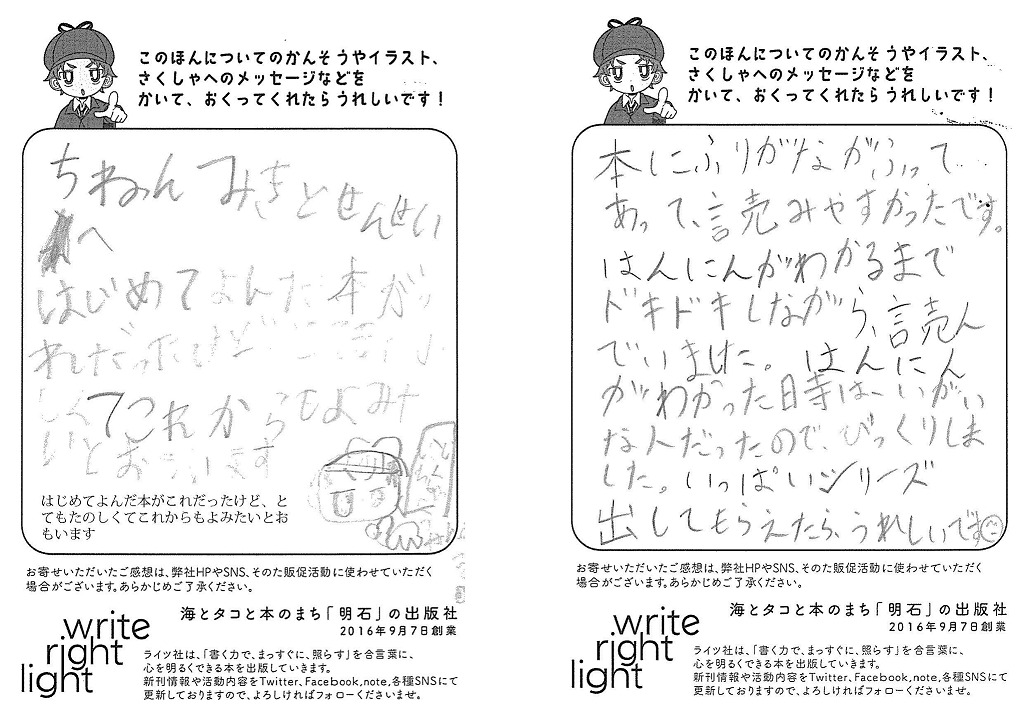 このほんについてのかんそうやイラスト、
さくしゃへのメッセージなどを
かいて、おくってくれたらうれしいです!
ちねんみきとせんせい
へ
はじめてよんだ本がこ
れだったけど、とてもたの
しくてこれからもよみた
いとおもいます
はじめてよんだ本がこれだったけど、と
てもたのしくてこれからもよみたいとお
もいます
お寄せいただいたご感想は、弊社HPやSNS、そのた販促活動に使わせていただく
場合がございます。あらかじめご了承ください。
write
right
light
海とタコと本のまち「明石」の出版社
2016年9月7日創業
ライツ社は、「書く力で、まっすぐに、照らす」を合言葉に、
心を明るくできる本を出版していきます。
新刊情報や活動内容をTwitter、Facebook,note,各種SNSにて
更新しておりますので、よろしければフォローくださいませ。
このほんについてのかんそうやイラスト、
さくしゃへのメッセージなどを
かいて、おくってくれたらうれしいです!
本にふりがながふって
あって、読みやすかったです。
はんにんがわかるまで
ドキドキしながら、読ん
でいました。はんにん
がわかった時は、いがい
な人だったので、びっくりしま
した。いっぱいシリーズ
出してもらえたら、うれしいです
お寄せいただいたご感想は、弊社HPやSNS、そのた販促活動に使わせていただく
場合がございます。あらかじめご了承ください。
write
right
light
海とタコと本のまち「明石」の出版社
2016年9月7日創業
ライツ社は、「書く力で、まっすぐに、照らす」を合言葉に、
心を明るくできる本を出版していきます。
新刊情報や活動内容をTwitter、Facebook,note,各種SNSにて
更新しておりますので、よろしければフォローくださいませ。